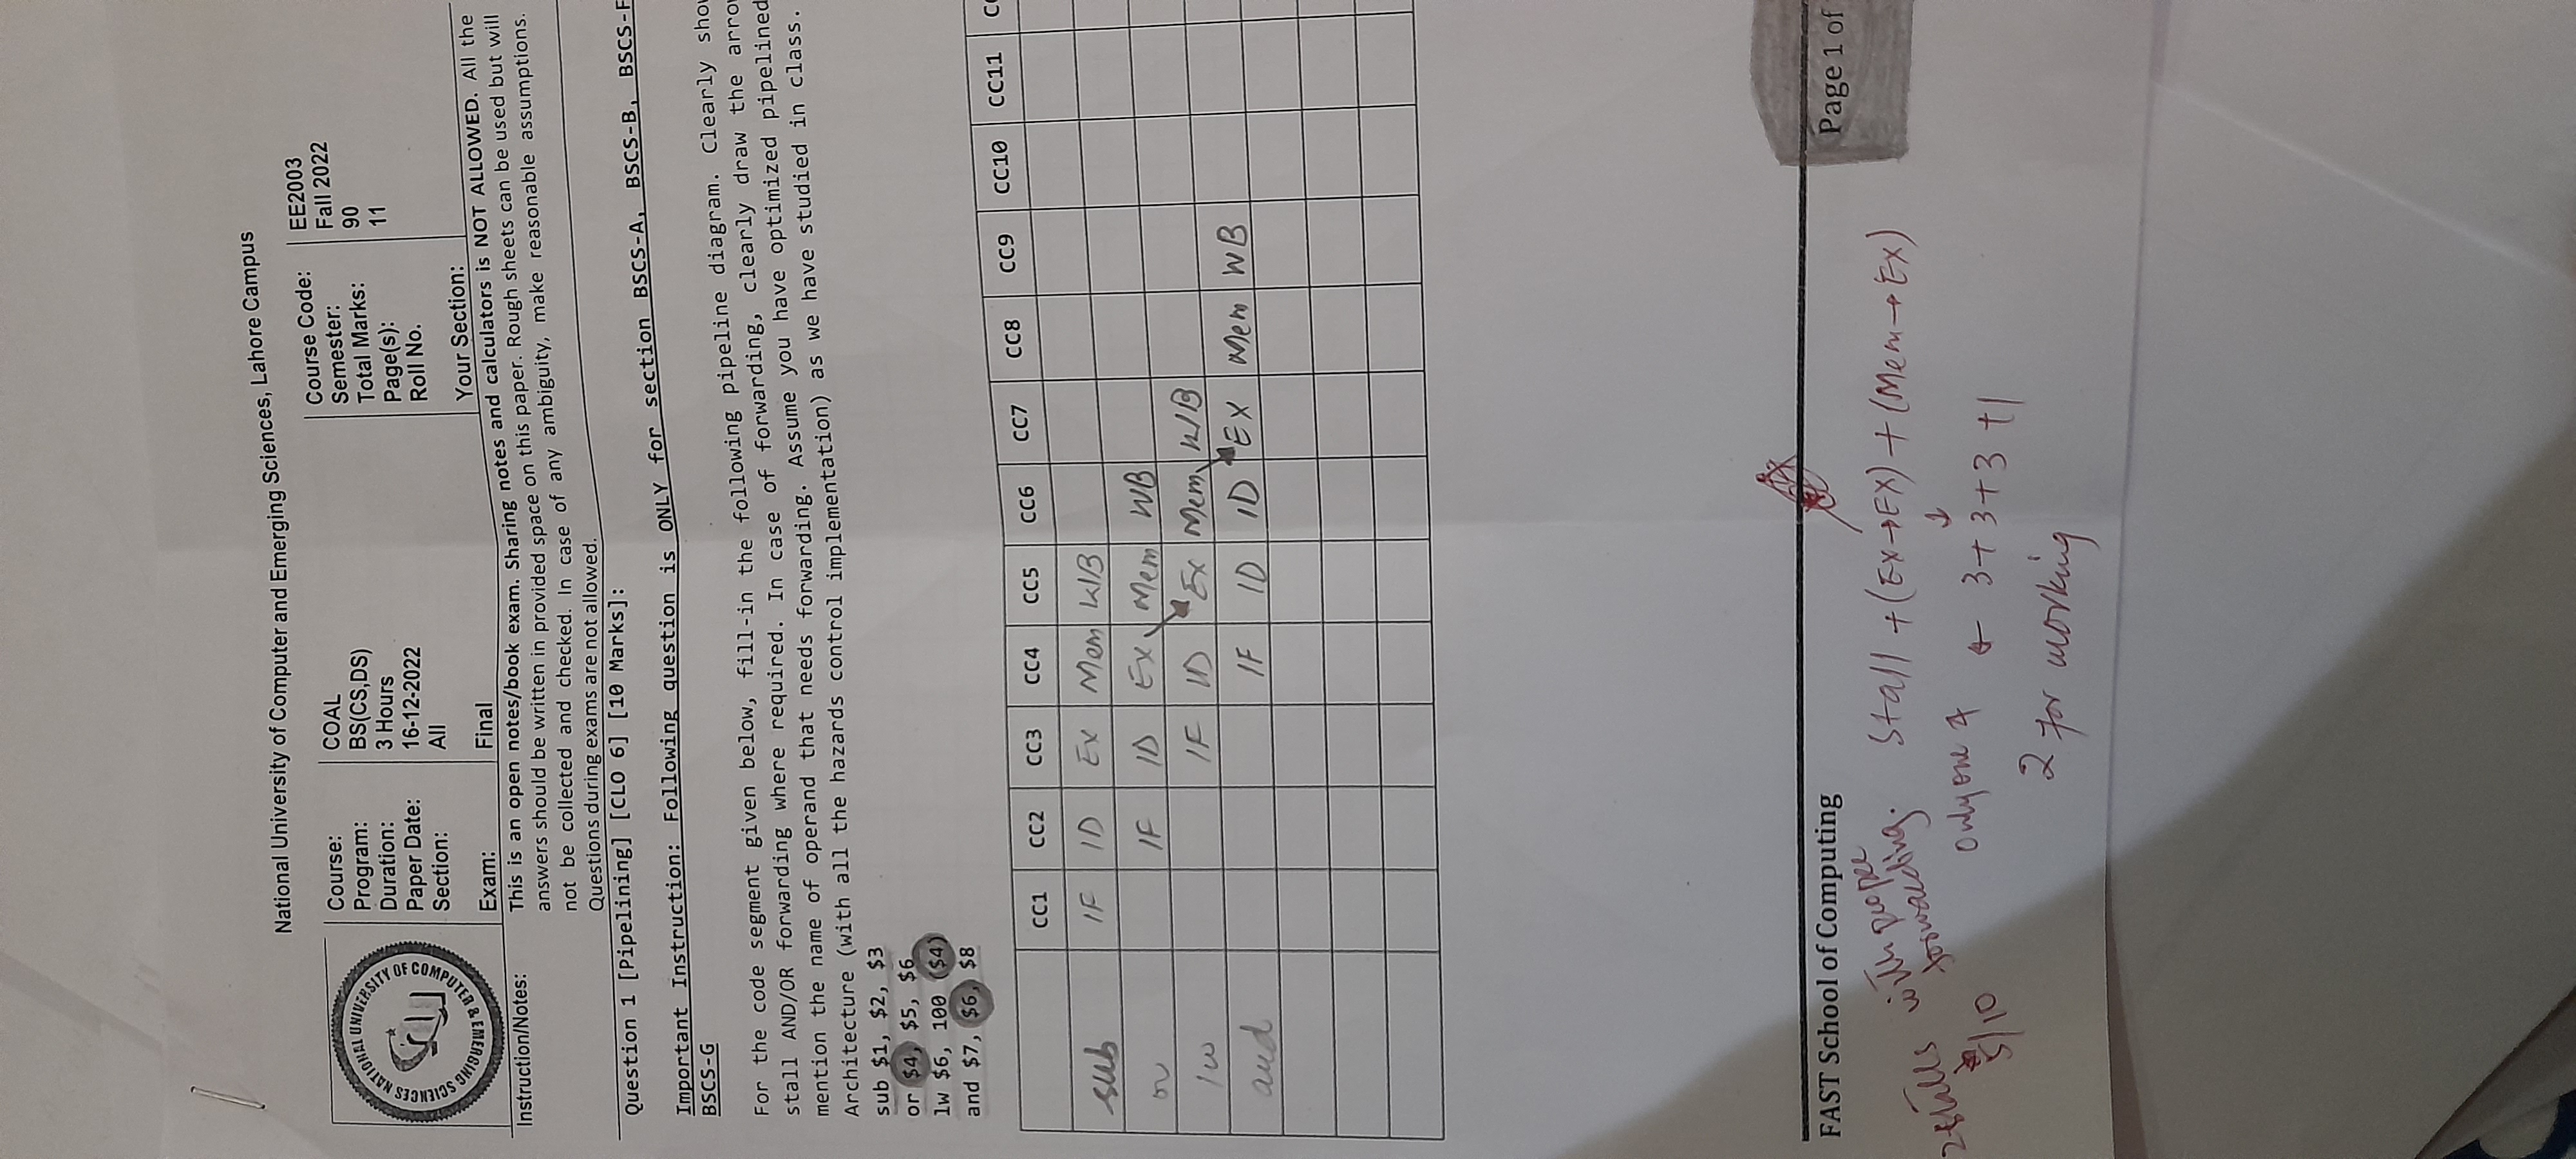 National University of Computer and Emerging Sciences, Lahore Campus
NATIONAL UNIVERSITY OF COMPUTER & EMERGING SCIENCES
Course: COAL Course Code: EE2003
Program: BS(CS,DS) Semester: Fall 2022
Duration: 3 Hours Total Marks: 90
Paper Date: 16-12-2022 Page(s): 11
Section: All Roll No.
Exam: Final Your Section:
Instruction/Notes: This is an open notes/book exam. Sharing notes and calculators is NOT ALLOWED. All the
answers should be written in provided space on this paper. Rough sheets can be used but will
not be collected and checked. In case of any ambiguity, make reasonable assumptions.
Questions during exams are not allowed.
Question 1 [Pipelining] [CLO 6] [10 Marks]:
Important Instruction: Following question is ONLY for section BSCS-A, BSCS-B, BSCS-F
BSCS-G
For the code segment given below, fill-in the following pipeline diagram. Clearly sho
stall AND/OR forwarding where required. In case of forwarding, clearly draw the arro
mention the name of operand that needs forwarding. Assume you have optimized pipelined
Architecture (with all the hazards control implementation) as we have studied in class.
sub $1, $2, $3
or $4, $5, $6
lw $6, 100 ($4)
and $7, $6, $8
CC1 CC2 CC3 CC4 CC5 CC6 CC7 CC8 CC9 CC10 CC11 C
sub IF ID Ex Mem WB
or IF ID Ex Mem WB
lw IF ID Ex Mem WB
and IF ID ID EX Mem WB
FAST School of Computing Page 1 of
2 stalls with proper
forwarding.
5/10
Stall + (Ex→EX) + (Mem→Ex)
↓
Only one 4 ← 3+3+3+1
2 for working